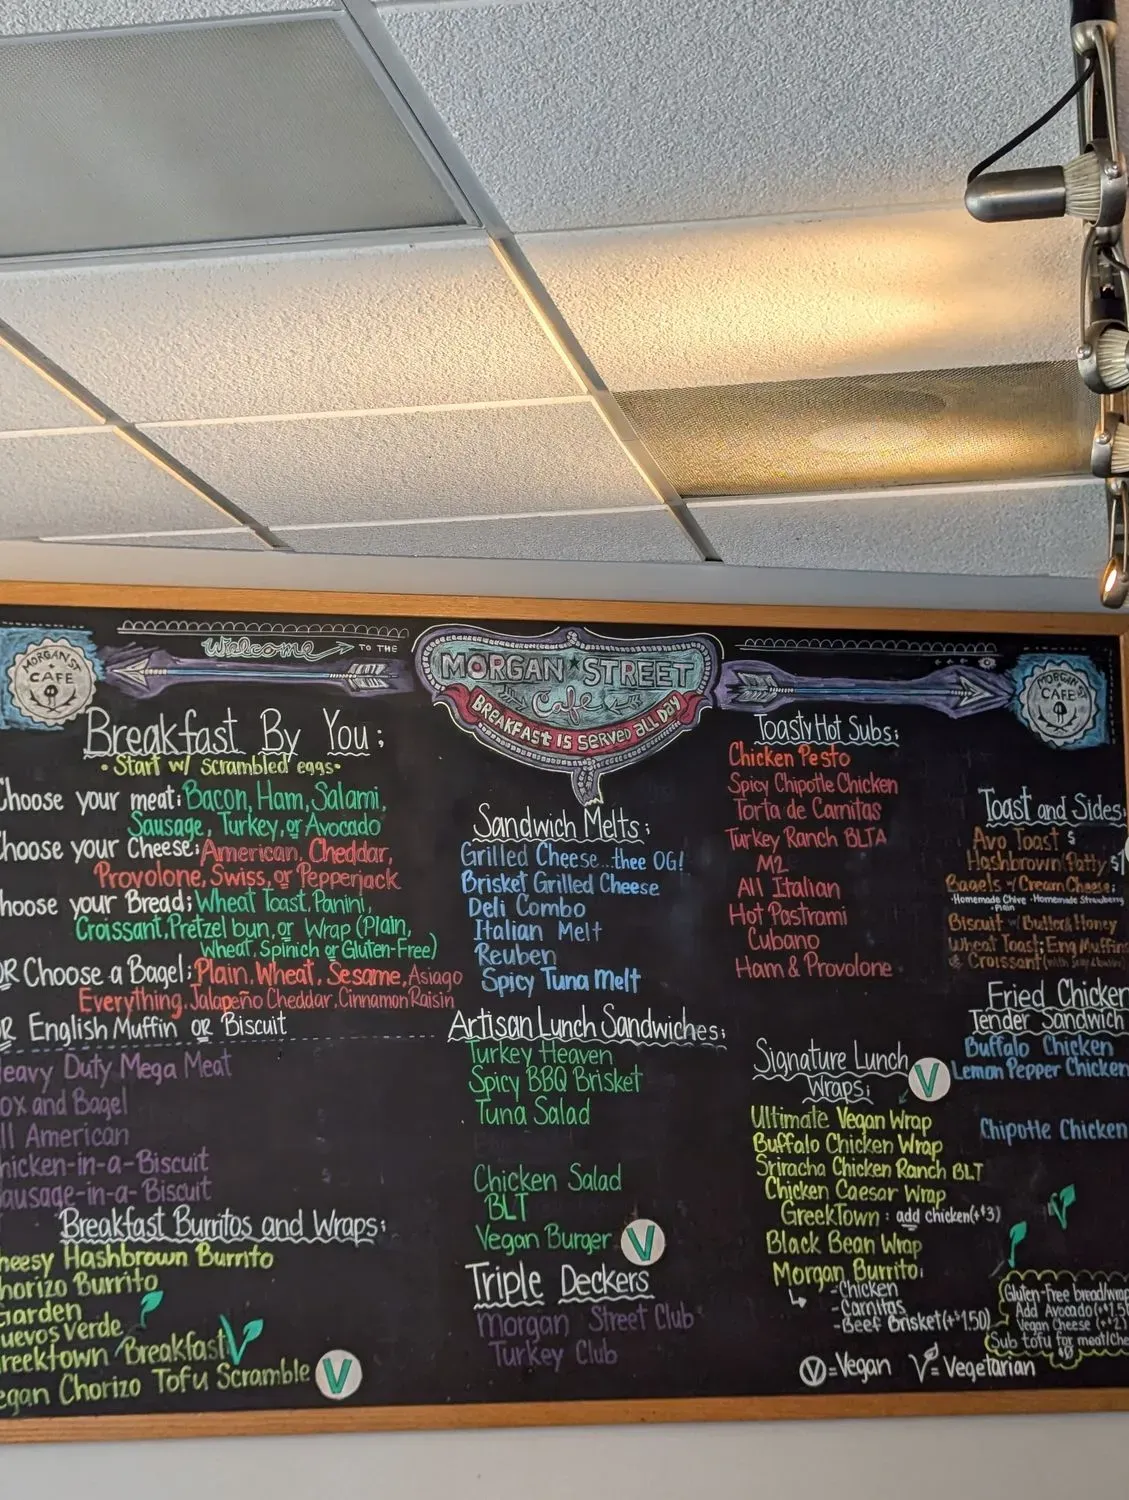 Welcome TO THE
MORGAN STREET
Cafe
BREAKFAST IS SERVED ALL DAY
MORGAN ST
CAFE
MORGAN ST
CAFE
Breakfast By You:
• Start w/ scrambled eggs •
Choose your meat: Bacon, Ham, Salami,
Sausage, Turkey, or Avocado
Choose your Cheese: American, Cheddar,
Provolone, Swiss, or Pepperjack
hoose your Bread: Wheat Toast, Panini,
Croissant, Pretzel bun, or Wrap (Plain,
Wheat, Spinich or Gluten-Free)
OR Choose a Bagel: Plain, Wheat, Sesame, Asiago
Everything, Jalapeño Cheddar, Cinnamon Raisin
OR English Muffin or Biscuit
eavy Duty Mega Meat
ox and Bagel
ll American
hicken-in-a-Biscuit
ausage-in-a-Biscuit
Breakfast Burritos and Wraps:
heesy Hashbrown Burrito
horizo Burrito
Garden
uevos Verde
reektown Breakfast V
egan Chorizo Tofu Scramble V
Sandwich Melts:
Grilled Cheese...thee OG!
Brisket Grilled Cheese
Deli Combo
Italian Melt
Reuben
Spicy Tuna Melt
Artisan Lunch Sandwiches:
Turkey Heaven
Spicy BBQ Brisket
Tuna Salad
Chicken Salad
BLT
Vegan Burger V
Triple Deckers
Morgan Street Club
Turkey Club
Toasty Hot Subs:
Chicken Pesto
Spicy Chipotle Chicken
Torta de Carnitas
Turkey Ranch BLTA
M2
All Italian
Hot Pastrami
Cubano
Ham & Provolone
Signature Lunch
Wraps: V
Ultimate Vegan Wrap
Buffalo Chicken Wrap
Sriracha Chicken Ranch BLT
Chicken Caesar Wrap
GreekTown: add chicken (+$3)
Black Bean Wrap
Morgan Burrito:
- Chicken
- Carnitas
- Beef Brisket (+$1.50)
V = Vegan V = Vegetarian
Toast and Sides:
Avo Toast $
Hashbrown Patty $1
Bagels w/ Cream Cheese:
•Homemade Chive •Homemade Strawberry
•Plain
Biscuit w/ Butter & Honey
Wheat Toast, Eng Muffins
& Croissant
Fried Chicken
Tender Sandwich
Buffalo Chicken
Lemon Pepper Chicken
Chipotle Chicken
V
Gluten-Free bread/wrap
Add Avocado (+$1.5
Vegan Cheese (+$2)
Sub tofu for meat/che